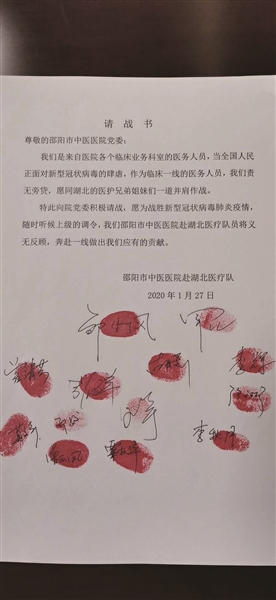 请 战 书
尊敬的邵阳市中医医院党委：
我们是来自医院各个临床业务科室的医务人员，当全国人民
正面对新型冠状病毒的肆虐，作为临床一线的医务人员，我们责
无旁贷，愿同湖北的医护兄弟姐妹们一道并肩作战。
特此向院党委积极请战，愿为战胜新型冠状病毒肺炎疫情，
随时听候上级的调令，我们邵阳市中医医院赴湖北医疗队员将义
无反顾，奔赴一线做出我们应有的贡献。
邵阳市中医医院赴湖北医疗队
2020 年 1 月 27 日